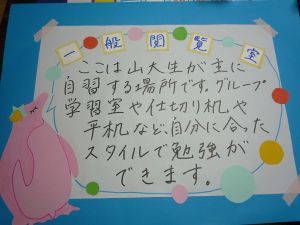 一般閲覧室
ここは山大生が主に
自習する場所です。グループ
学習室や仕切り机や
平机など、自分に合った
スタイルで勉強が
できます。